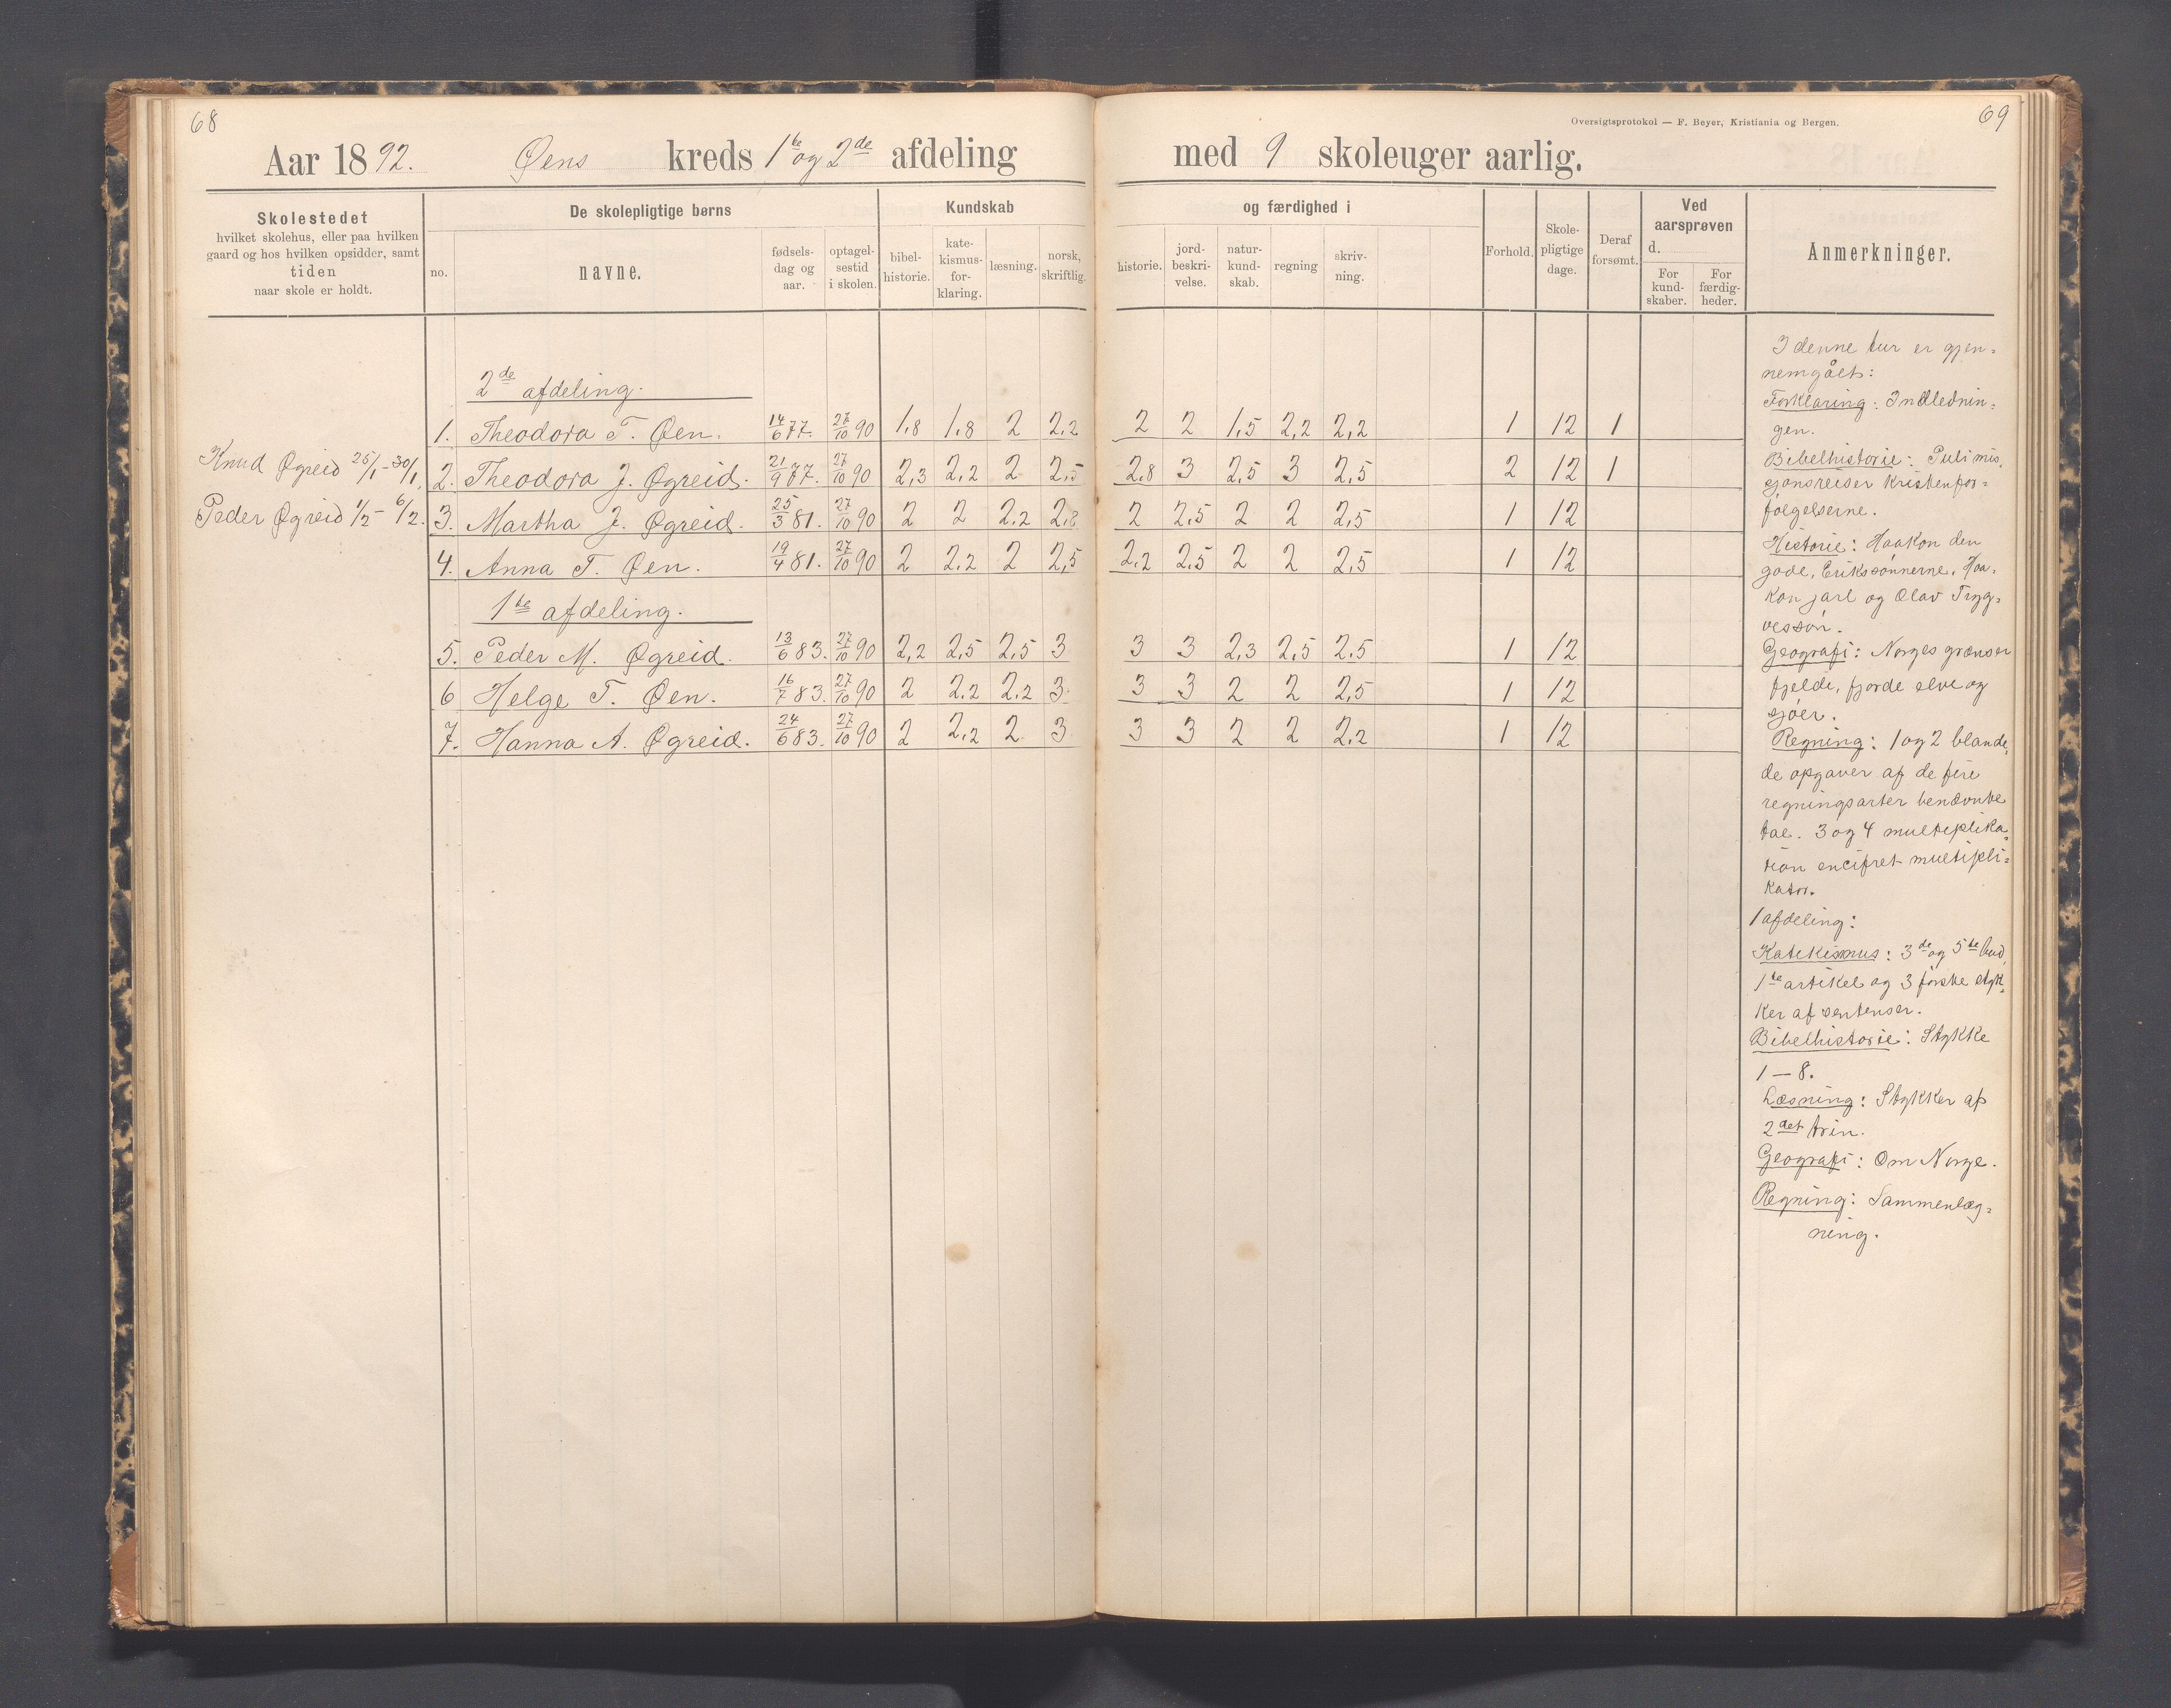 68
69
Oversigtsprotokol — F. Beyer, Kristiania og Bergen.
Aar 1892. Øens kreds 1ste og 2de afdeling med 9 skoleuger aarlig.
Skolestedet
hvilket skolehus, eller paa hvilken
gaard og hos hvilken opsidder, samt
tiden
naar skole er holdt.
De skolepligtige børns
no.
navne.
fødsels-
dag og
aar.
optagel-
sestid
i skolen.
Kundskab
bibel-
historie.
kate-
kismus-
for-
klaring.
læsning.
norsk,
skriftlig.
og færdighed i
historie.
jord-
beskri-
velse.
natur-
kund-
skab.
regning
skriv-
ning.
Forhold.
Skole-
pligtige
dage.
Deraf
forsømt.
Ved
aarsprøven
d.
For
kund-
skaber.
For
færdig-
heder.
Anmerkninger.
Knud Øgreid 25/1 - 30/1.
Peder Øgreid 1/2 - 6/2.
2de afdeling.
1. Theodora T. Øen. 14/6 77. 27/10 90 1,8 1,8 2 2,2 2 2 1,5 2,2 2,2 1 12 1
2. Theodora J. Øgreid. 21/9 77. 27/10 90 2,3 2,2 2 2,5 2,8 3 2,5 3 2,5 2 12 1
3. Martha J. Øgreid. 25/3 81. 27/10 90 2 2 2,2 2,8 2 2,5 2 2 2,5 1 12
4. Anna T. Øen. 19/4 81. 27/10 90 2 2,2 2 2,5 2,2 2,5 2 2 2,5 1 12
1te afdeling.
5. Peder M. Øgreid. 13/6 83. 27/10 90 2,2 2,5 2,5 3 3 3 2,3 2,5 2,5 1 12
6 Helge T. Øen. 16/7 83. 27/10 90 2 2,2 2,2 3 3 3 2 2 2,5 1 12
7. Hanna A. Øgreid. 24/6 83. 27/10 90 2 2,2 2 3 3 3 2 2 2,2 1 12
I denne tur er gjen-
nemgået:
Forklaring: Indlednin-
gen.
Bibelhistorie: Puli mis-
sjonsreiser Kristenfor-
følgelserne.
Historie: Haakon den
gode, Erikssønnerne, Haa-
kon jarl og Olav Tryg-
vessøn.
Geografi: Norges grænser
fjelde, fjorde elve og
sjøer.
Regning: 1 og 2 blande-
de opgaver af de fire
regningsarter benævnte
tal. 3 og 4 multiplika-
tion encifret multipli-
kator.
1 afdeling:
Katekismus: 3de og 5te bud,
1te artikel og 3 første styk-
ker af sentenser.
Bibelhistorie: Stykke
1 — 8.
Læsning: Stykker af
2det trin.
Geografi: Om Norge.
Regning: Sammenlæg-
ning.